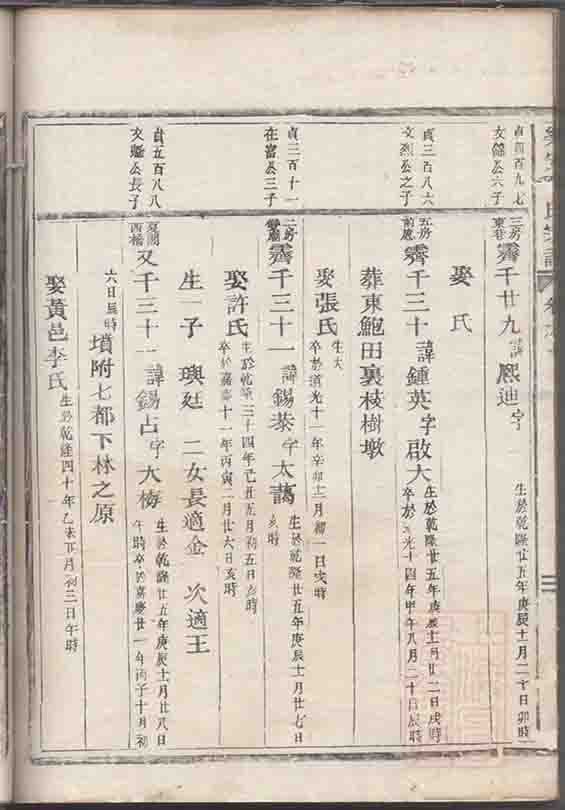 貞四百九七
文錦公六子
三房
東巷
霽千廿九諱熙迪字
生於乾隆廿五年庚辰十一月二十日卯時
娶 氏
貞三百八六
文烈公之子
五房
前處
霽千三十諱鍾英字啟大
生於乾隆廿五年庚辰十一月廿二日戌時
卒於道光十四年甲午八月二十日辰時
葬東鮑田裏枝樹墩
娶張氏
生 大
卒於道光十一年辛卯十二月初一日亥時
貞三百十一
在富公三子
二房
霽千三十一諱錫泰字太藹
生於乾隆廿五年庚辰十一月廿七日
亥時
娶許氏
生於乾隆三十四年己丑五月初五日亥時
卒於嘉慶十一年丙寅二月廿六日亥時
生一子璵廷 二女長適金 次適王
貞五百八八
文 公長子
西橋
又千三十一諱錫占字大梅
生於乾隆廿五年庚辰十一月廿八日
午時卒於嘉慶廿一年丙子十月初
六日辰時
墳附七都下林之原
娶黃邑李氏
生於乾隆四十年乙未正月初三日午時